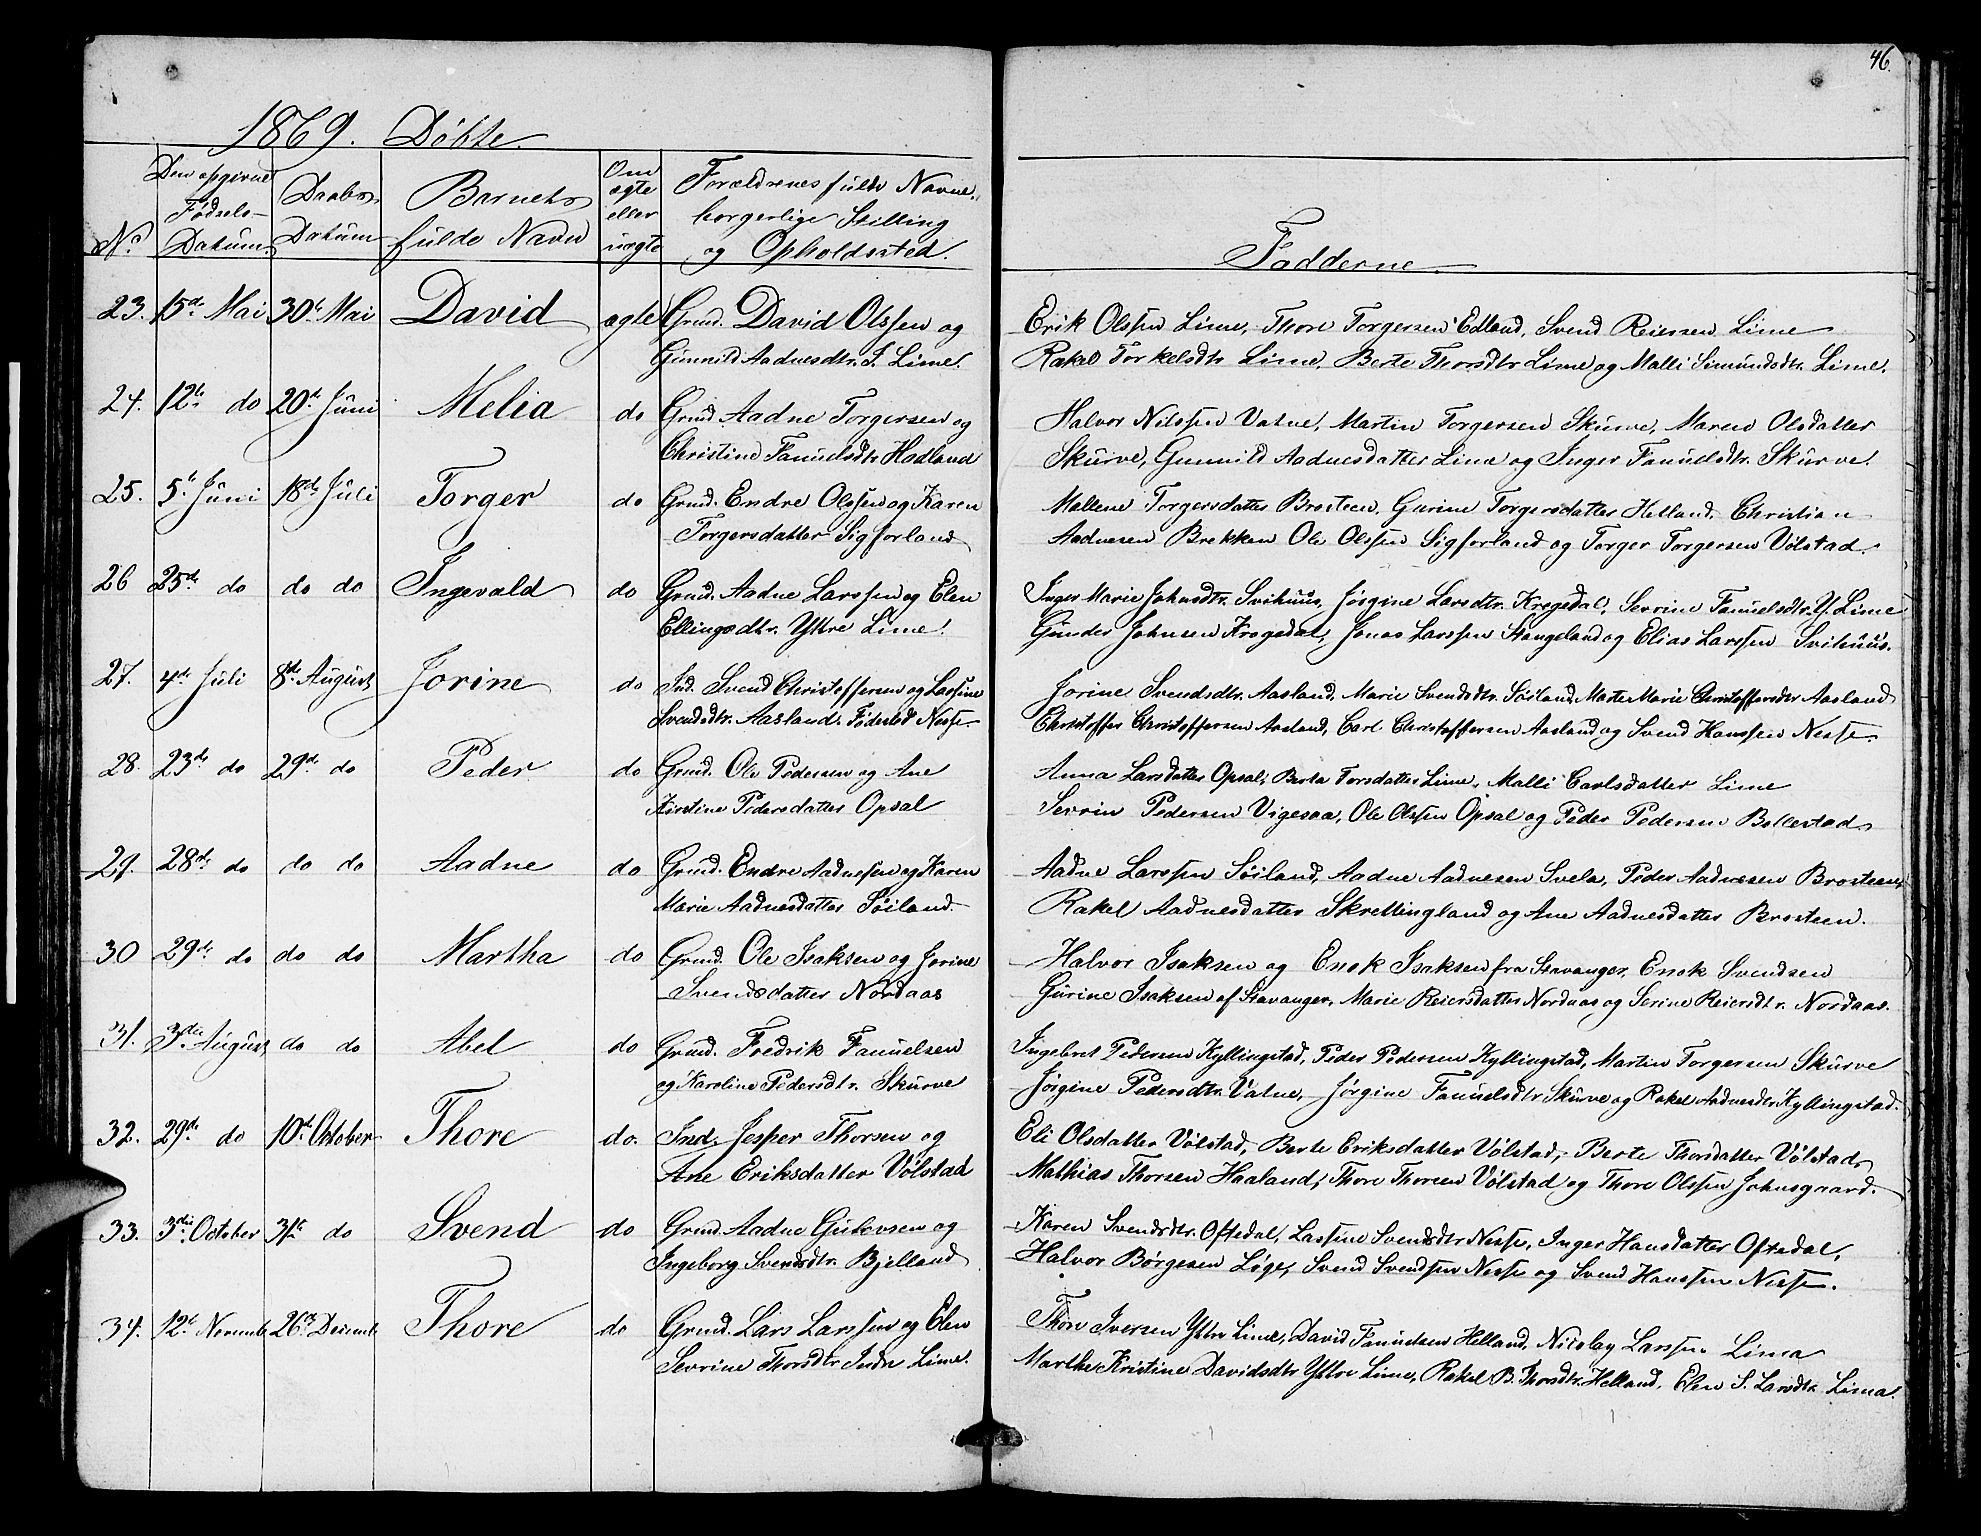 46.
1869. Döbte.
No
Den opgivne Fødsels-Datum.
Daabs Datum
Barnets fulde Navn
Om ægte eller uægte
Forældrenes fulde Navne, borgerlige Stilling og Opholdssted.
Fadderne
23. 15de Mai 30te Mai David ægte Grmd. David Olssen og Erik Olssen Lime, Thore Torgersen Edland, Svend Reiersen Lime
Gunnild Aadnesdtr. I. Lime. Rakel Torkelsdtr Lime, Berte Thorsdtr Lime og Malli Simundsdtr. Lime.
24. 12te do 20de Juni Melia do Grmd. Aadne Torgersen og Halvor Nilssen Vatne, Martin Torgersen Skurve, Maren Olsdatter
Christine Fanuelsdtr Hadland Skurve, Gunnild Aadnesdatter Lima og Inger Fanuelsdtr. Skurve.
25. 5te Juni 18de Juli Torger do Grmd. Endre Olssen og Karen Mallene Torgersdatter Brosteen, Gurine Torgersdatter Hetland, Christian
Torgersdatter Sigforland Aadnesen Brekken Ole Olssen Sigforland og Torger Torgersen Vølstad.
26 25de do do do Ingevald do Grmd. Aadne Larssen og Elen Inger Marie Johnsdtr. Svihuus, Jørgine Larsdtr. Kregedal, Sevrine Fanuelsdtr. Y. Lime
Ellingsdtr. Yttre Lime. Gunder Johnsen Krogedal, Jonas Larssen Stangeland og Elias Larssen Svihuus.
27. 4de Juli 8de August Jorine do Ind. Svend Christoffersen og Lassine Jorine Svendsdtr. Aasland, Marie Svendsdtr. Søiland, Marta Marie Christoffersdtr Aasland
Svendsdtr. Aasland. Fødested Nesse. Christoffer Christoffersen Aasland, Carl Christoffersen Aasland og Svend Hanssen Nesse.
28. 23de do 29de do Peder do Grmd. Ole Pedersen og Ane Anna Larsdatter Opsal, Berta Torsdatter Lime, Malli Carlsdatter Lime
Kirstine Pedersdatter Opsal Sevrin Pedersen Vigesaa, Ole Olssen Opsal og Peder Pedersen Bollestad
29. 28de do do do Aadne do Grmd. Endre Aadnesen og Karen Aadne Larssen Søiland, Aadne Aadnesen Svela, Peder Aadnesen Brosteen,
Marie Aadnesdatter Søiland. Rakel Aadnesdatter Skrettingland og Ane Aadnesdatter Brosteen.
30 29de do do do Martha do Grmd. Ole Isaksen og Jorine Halvor Isaksen og Enok Isaksen fra Stavanger, Enok Svendsen
Svendsdatter Nordaas Gurine Isaksen af Stavanger, Marie Reiersdatter Nordaas og Serine Reiersdtr. Nordaas.
31. 3die August do do Abel do Grmd. Fredrik Fanuelsen Ingebret Pedersen Kyllingstad, Peder Pedersen Kyllingstad, Martin Torgersen Skurve
og Karoline Pedersdtr. Skurve Jørgine Pedersdtr. Vatne, Jørgine Fanuelsdtr Skurve og Rakel Aadnesdtr Kyllingstad.
32. 29de do 10de Oktober Thore do. Ind. Jesper Thorsen og Eli Olsdatter Vølstad, Berte Eriksdatter Vølstad, Berte Thorsdatter Vølstad,
Ane Eriksdatter Vølstad Mathias Thorsen Haaland, Thore Thorsen Vølstad og Thore Olssen Johnsgaard.
33. 3die October 31te do Svend do Grmd. Aadne Gutevsen og Karen Svendsdtr. Oftedal, Lassine Svendsdtr Nesse, Inger Hansdatter Oftedal,
Ingeborg Svendsdtr. Bjelland Halvor Børgesen Løge, Svend Svendsen Nesse og Svend Hanssen Nesse.
34. 12te Novemb 26de Decemb Thore do Grmd. Lars Larssen og Elen Thore Iversen Yttre Lime, David Fanuelsen Helland, Nicolay Larssen Lima
Sevrine Thorsdtr Indre Lime. Marthe Kristine Davidsdtr Yttre Lime, Rakel B. Thorsdtr. Helland, Elen S. Larsdtr Lima.